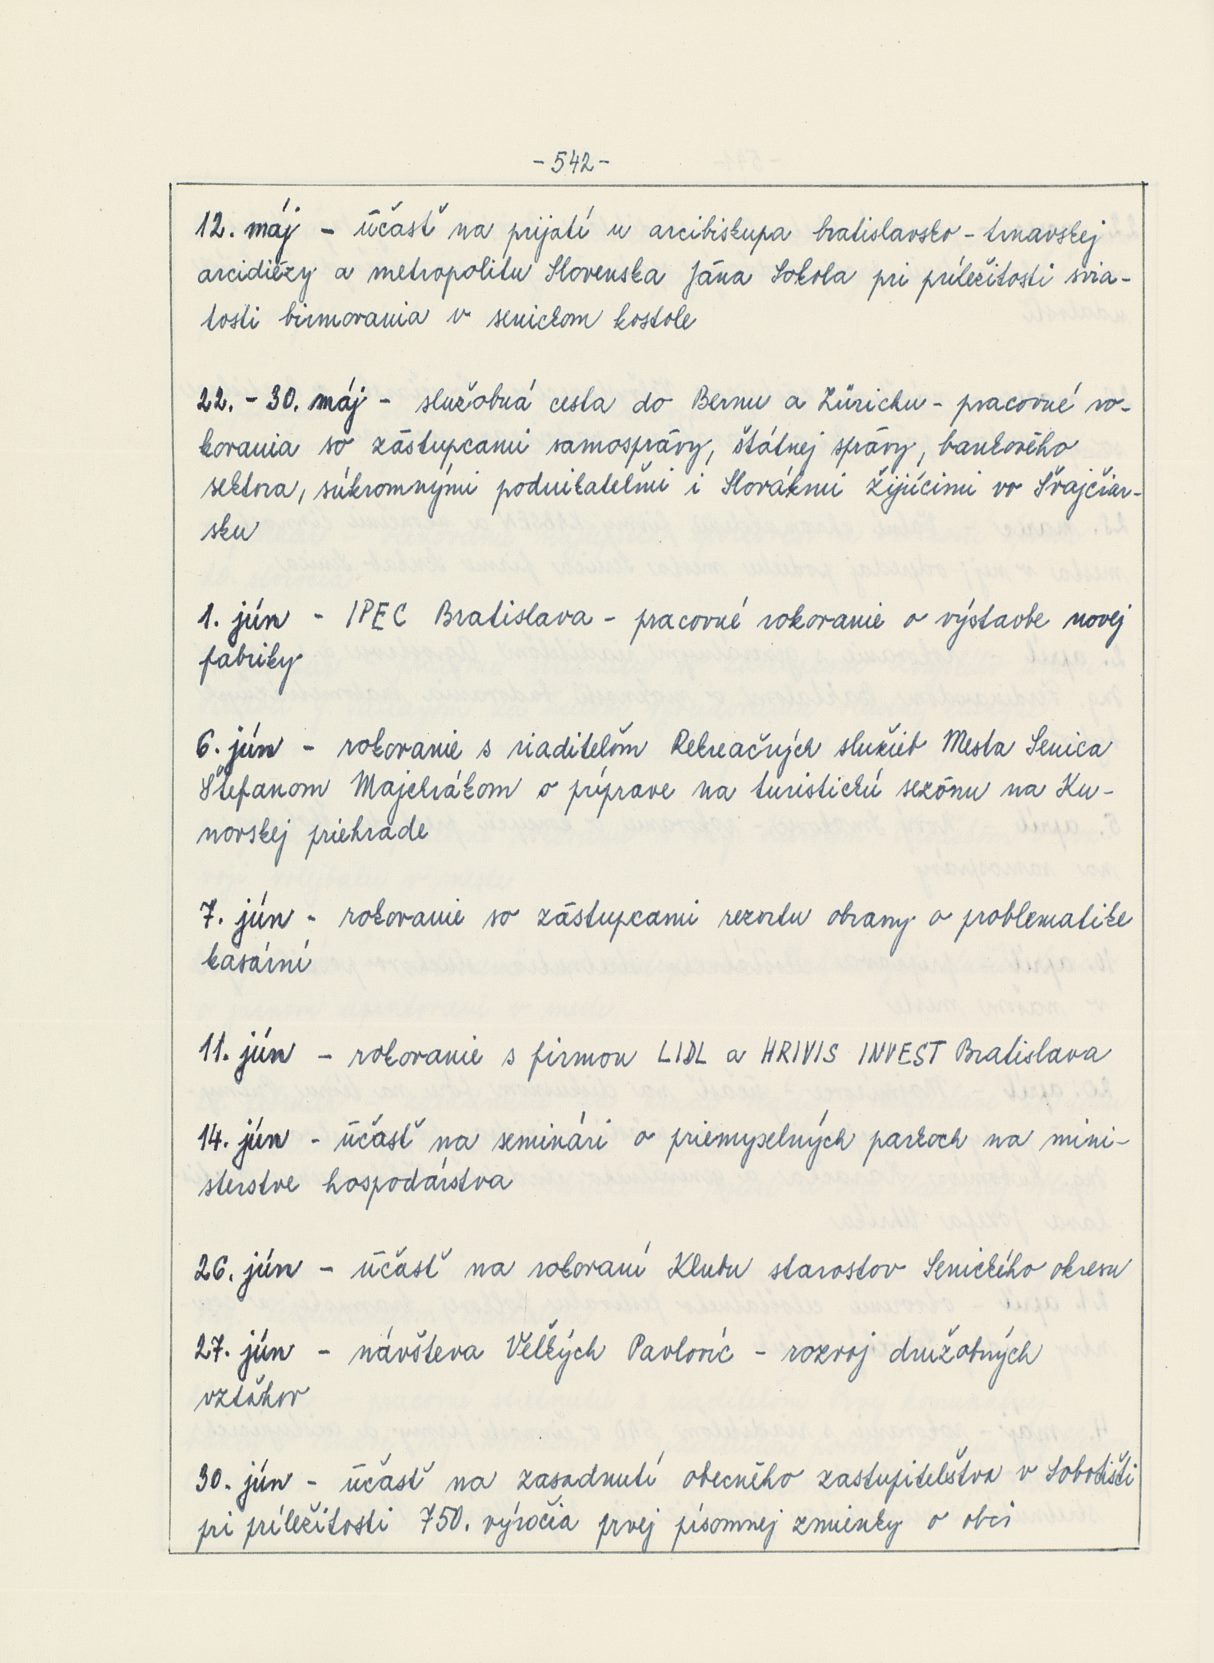 -542-
12. máj - účasť na prijatí u arcibiskupa bratislavsko-trnavskej
arcidiézy a metropolitu Slovenska Jána Sokola pri príležitosti svia-
tosti birmovania v senickom kostole
22. - 30. máj - služobná cesta do Bernu a Zürichu - pracovné ro-
kovania so zástupcami samosprávy, štátnej správy, bankového
sektora, súkromnými podnikateľmi i Slovákmi žijúcimi vo Švajčiar-
sku
1. jún - IPEC Bratislava - pracovné rokovanie o výstavbe novej
fabriky
6. jún - rokovanie s riaditeľom Rekreačných služieb Mesta Senica
Štefanom Majchrákom o príprave na turistickú sezónu na Ku-
novskej priehrade
7. jún - rokovanie so zástupcami rezortu obrany o problematike
kasární
11. jún - rokovanie s firmou LIDL a HRIVIS INVEST Bratislava
14. jún - účasť na seminári o priemyselných parkoch na mini-
sterstve hospodárstva
26. jún - účasť na rokovaní Klubu starostov Senického okresu
27. jún - návšteva Veľkých Pavlovíc - rozvoj družobných
vzťahov
30. jún - účasť na zasadnutí obecného zastupiteľstva v Sobotišti
pri príležitosti 750. výročia prvej písomnej zmienky o obci